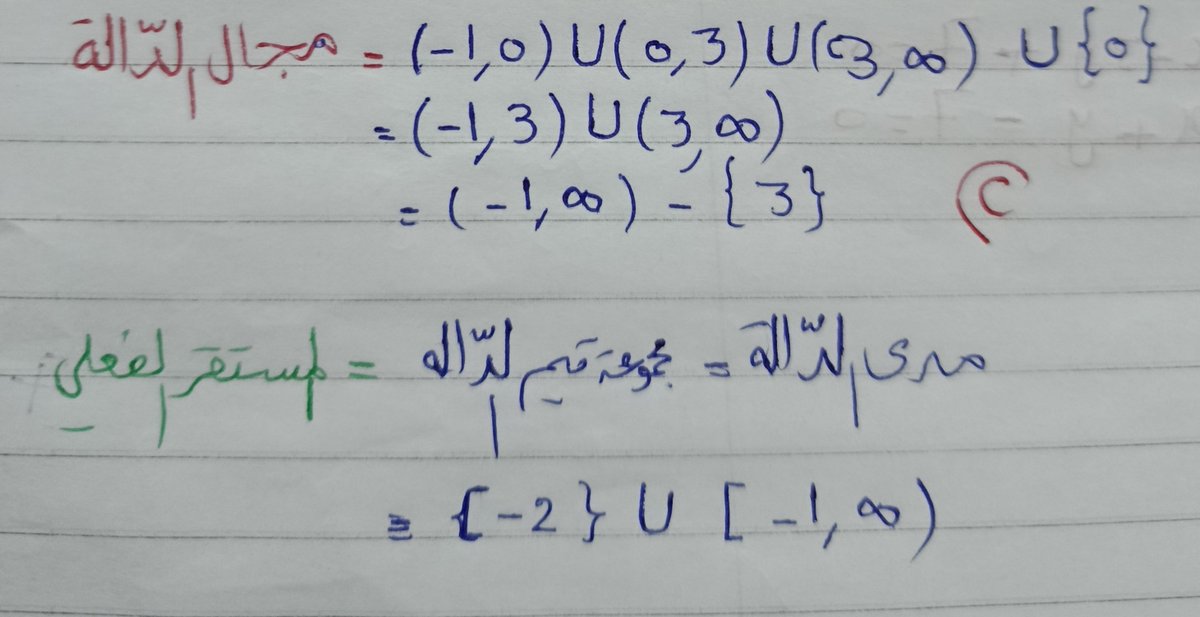 مجال الدّالة = (-1,0) U (0,3) U (3,∞) U {0}
= (-1,3) U (3,∞)
= (-1,∞) - {3}
مدى الدّالة = مجموعة قيم الدّالة = المستقر الفعلي
= {-2} U [-1,∞)